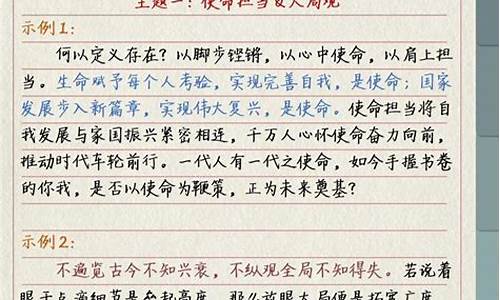 主题一：使命担当&大局观
示例1:
何以定义存在？以脚步铿锵，以心中使命，以肩上担
当。生命赋予每个人考验，实现完善自我，是使命；国家
发展步入新篇章，实现伟大复兴，是使命。使命担当将自
我发展与家国振兴紧密相连，千万人心怀使命奋力向前，
推动时代车轮前行。一代人有一代之使命，如今手握书卷
的你我，是否以使命为鞭策，正为未来奠基？
示例2:
不遍览古今不知兴衰，不纵观全局不知得失。若说着
眼于点滴细节是垒起高度，那么放眼大局便是拓宽广度。